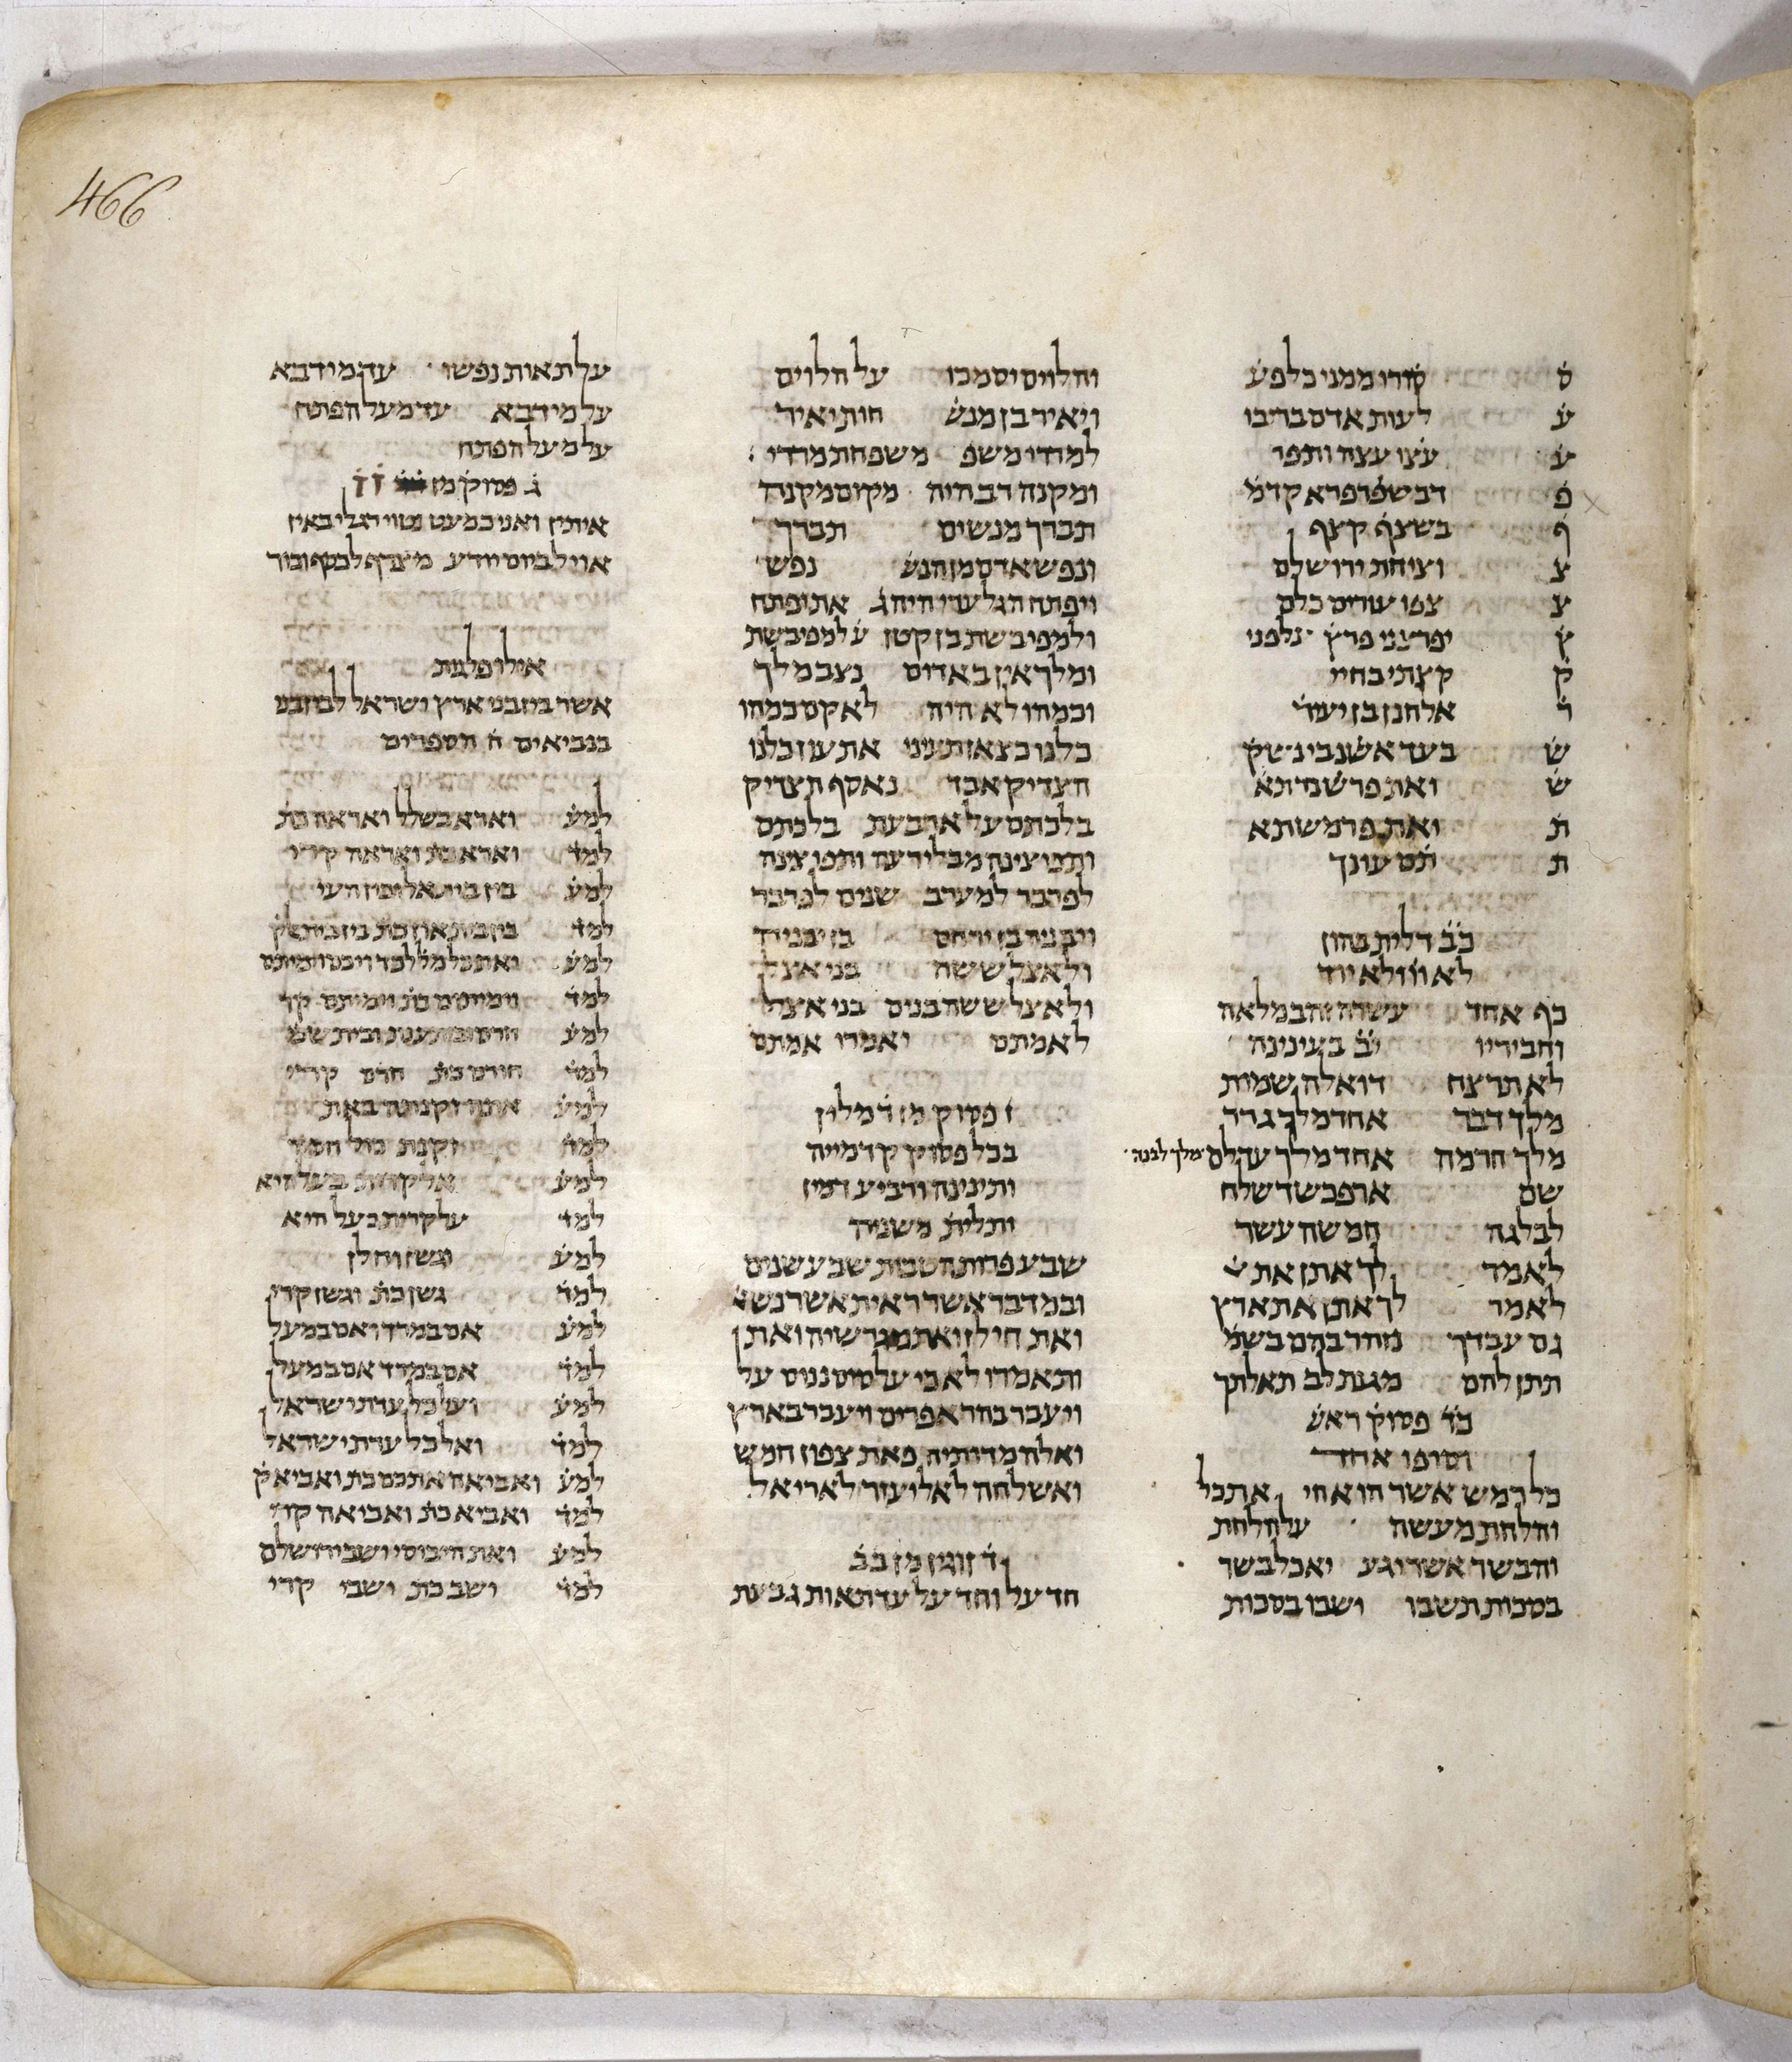 466
ס סורו ממני כל פע
ע לעות אדם בריבו
ע עצו עצה ותפר
פ דבשפרפרא קדמ
ף בשצף קצף
צ וציחת ירושלם
צ צפו עורים כלם
ץ יפרצני פרץ על פני
ק קצתי בחיי
ר אלחנן בן יעור
ש בעד אשנבי נשק
ש ואת פרשנדתא
ת ואת פרמשתא
ת תם עונך
כ̇ב̇ דלית בהון
לא וו ולא יוד
כף אחד עשרה זהב מלאה
וחביריו י̇ב̇ בעינינה
לא תרצח ואלה שמות
מלך דבר אחד מלך גדר
מלך חרמה אחד מלך עדלם מלך לבנה
שם ארפכשד שלח
לבלגה חמשה עשר
לאמר לך אתן את
לאמר לך אתן את ארץ
גם עבדך נזהר בהם בשמ
תתן להם מגנת לב תאלתך
כ̇ד̇ פסוק ראש
וסופו אחד
כל רמש אשר הוא חי את כל
והלחת מעשה על הלחת
והבשר אשר יגע יאכל בשר
בסכות תשבו ישבו בסכות
והלוים יסמכו על הלוים
ויאיר בן מנש חות יאיר
למררי משפ משפחת מררי
ומקנה רב היה מקום מקנה
תברך מנשים תברך
ונפש אדם מן הנש נפש
ויפתח הגלעדי היה ג את יפתח
ולמפיבשת בן קטן על מפיבשת
ומלך אין באדום נצב מלך
וכמהו לא היה לא קם כמהו
כלנו כצאן תעינו את עון כלנו
הצדיק אבד נאסף הצדיק
בלכתם על ארבעת בלכתם
ותפוצינה מבלי רעה ותפוצינה
לפרבר למערב שנים לפרבר
ויבניה בן ירחם בן יבניה
ולאצל ששה בני אצל
ולאצל ששה בנים בני אצל
לאמתם ואמרו אמתם
ז פסוק מן ד מלין
בכל פסוק קדמייה
ותינינה ורביע דמין
ותלית משניה
שבע פרות הטבות שבע שנים
ובמדבר אשר ראית אשר נשא
ואת חילן ואת מגרשיה ואת
ותאמרו לא כי על סוס ננוס על
ויעבר בהר אפרים ויעבר בארץ
ואלה מדותיה פאת צפון חמש
ואשלחה לאליעזר לאריאל
ד זוגין מן ב̇ב̇
חד על וחד על עד תאות גבעת
על תאות נפשו עד מידבא
על מידבא עד מעל הפתח
על מעל הפתח
ג פסוק מן ז̇ ז̇
איתין ואני כמעט נטוי רגלי באין
אויל ביום יודע מצרף לכסף וכור
אילו פלגות
אשר בין בני ארץ ישראל לבין בני
בנביאים ח הספרים
למע וארא בשלל ואראה כת
למד וארא כת ואראה קרי
למע בין בית אל ובין העי
למד
למע
למד
למע
למד חורם כת חרם קרי
למע
למד
למע אל קרית בעל היא
למד על קרית בעל היא
למע וגשן וחלן
למד גשן כת וגשן קרי
למע אם במרד ואם במעל
למד אם במרד אם במעל
למע ועל כל עדת ישראל
למד ואל כל עדת ישראל
למע ואביאה אתכם כת ואביא ק
למד ואביא כת ואביאה קרי
למע ואת היבוסי ישבי ירושלם
למד ישב כת ישבי קרי